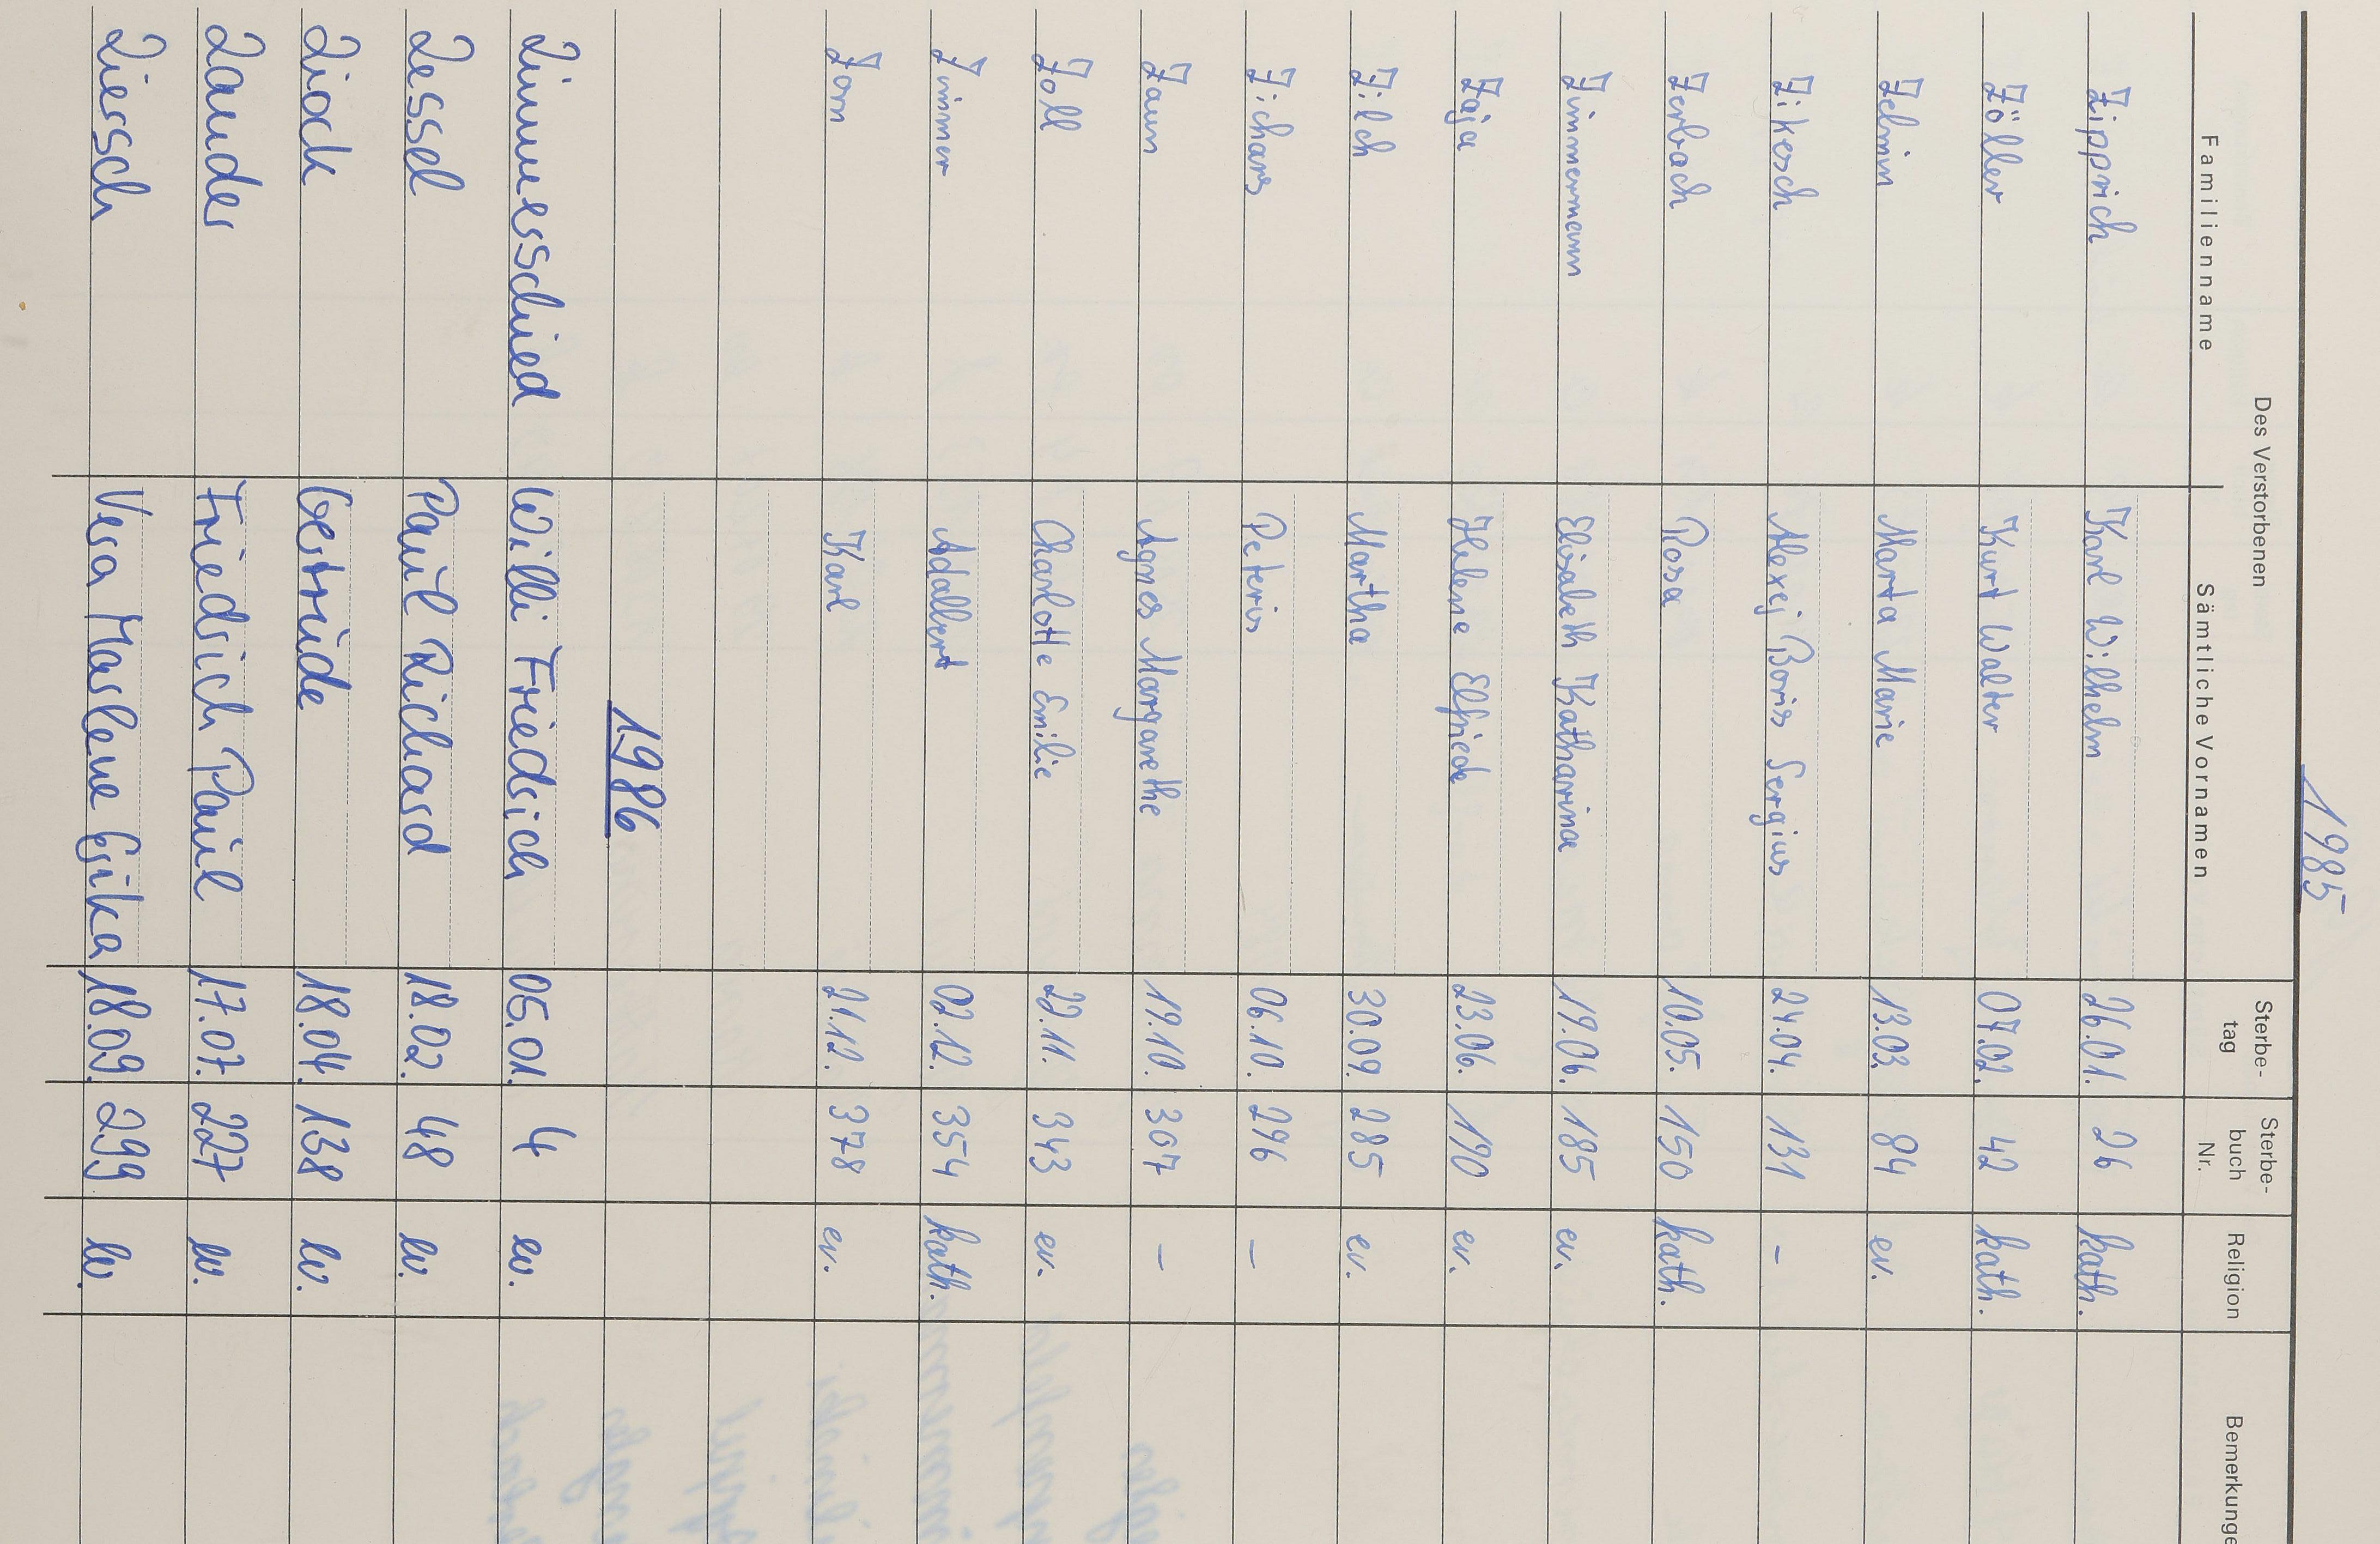 1985
Des Verstorbenen
Familienname Sämtliche Vornamen Sterbe-tag Sterbe-buch Nr. Religion Bemerkunge
Zipprich Karl Wilhelm 26.01. 26 kath.
Zöller Kurt Walter 07.02. 42 kath.
Zelmin Marta Marie 13.03. 84 ev.
Zikesch Alexej Boris Sergius 24.04. 131 –
Zerbach Rosa 10.05. 150 kath.
Zimmermann Elisabeth Katharina 19.06. 185 ev.
Zaja Helene Elfriede 23.06. 190 ev.
Zilch Martha 30.09. 285 ev.
Zichars Peteris 06.10. 296 –
Zaun Agnes Margarethe 19.10. 307 –
Zoll Charlotte Emilie 22.11. 343 ev.
Zimmer Adalbert 02.12. 354 kath.
Zorn Karl 21.12. 378 ev.
1986
Zimmerschied Willi Friedrich 05.01. 4 ev.
Zessel Paul Richard 18.02. 48 ev.
Zioch Gertrude 18.04. 138 ev.
Zander Friedrich Paul 17.07. 227 ev.
Ziersch Vera Marlene Erika 18.09. 299 ev.